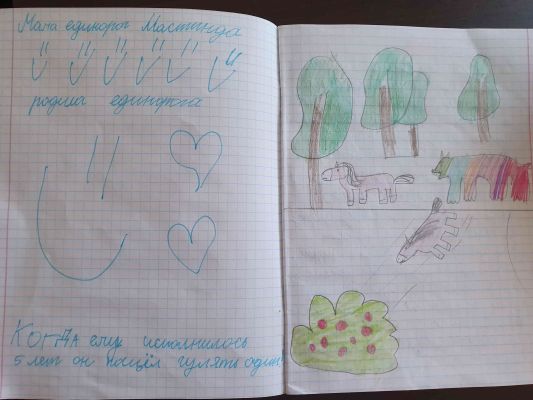 Мама единорог Мастинда
родила единорога
Когда ему исполнилось
5 лет он пошёл гулять один!